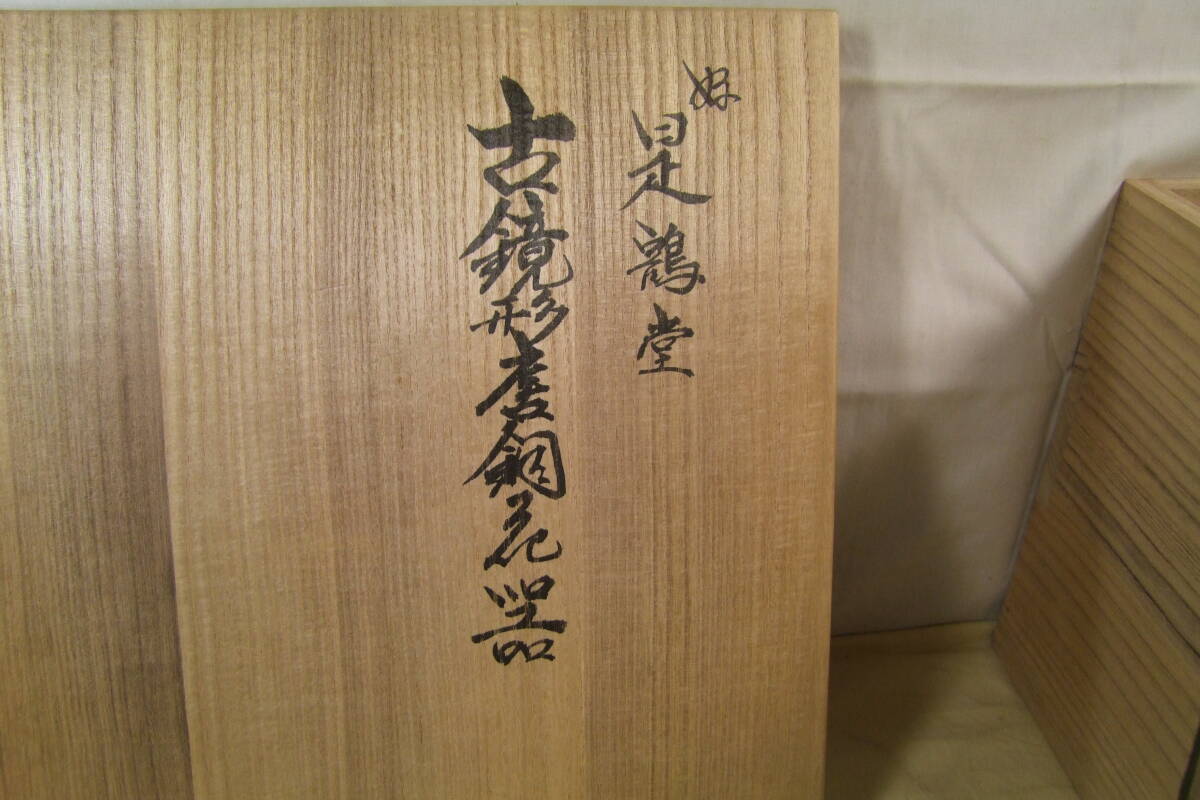 好
是鶴堂
古鏡形唐銅花器